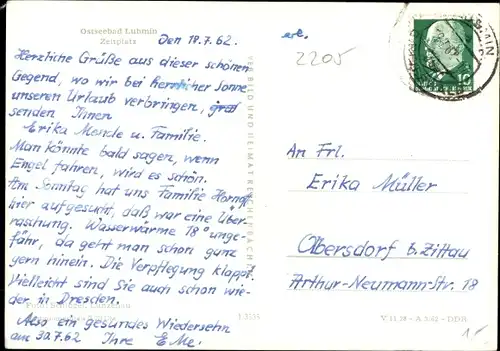 Ostseebad Lubmin
Zeltplatz
Den 18.7.62.
Herzliche Grüße aus dieser schönen
Gegend, wo wir bei herrlicher Sonne
unseren Urlaub verbringen,
senden Ihnen
Erika Mende u. Familie.
Man könnte bald sagen, wenn
Engel fahren, wird es schön.
Am Sonntag hat uns Familie
hier aufgesucht, daß war eine Über-
raschung. Wasserwärme 18° unge-
fähr, da geht man schon ganz
gern hinein. Die Verpflegung klappt.
Vielleicht sind Sie auch schon wie-
der in Dresden.
Also ein gesundes Wiedersehn
am 30.7.62 Ihre E. Me.
VERBILD UND HEIMAT REICHENBACH
erl.
2205
10
An Frl.
Erika Müller
Obersdorf b. Zittau
Arthur-Neumann-Str. 18
DDR